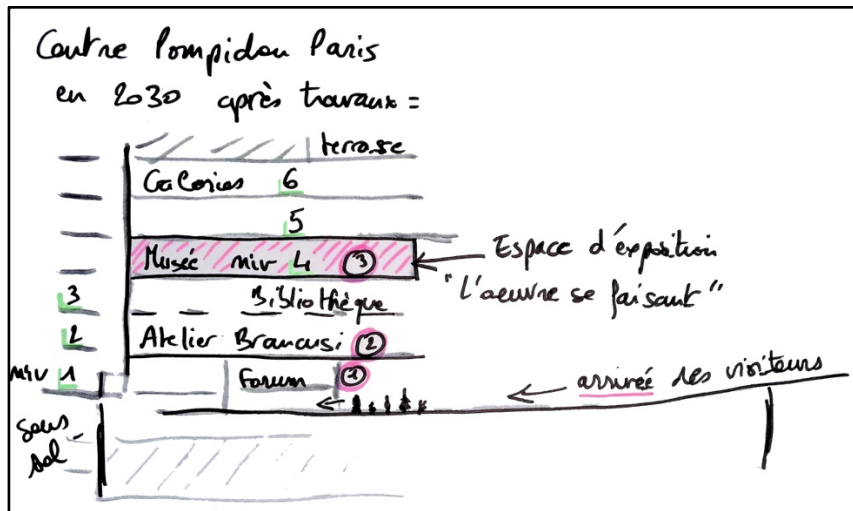 Centre Pompidou Paris
en 2030 après travaux =
terrasse
Galeries 6
5
Musée niv 4 ③
Espace d'exposition
"L'oeuvre se faisant"
3
Bibliothèque
2
Atelier Brancusi ②
niv 1
Forum ①
arrivée des visiteurs
sous
sol